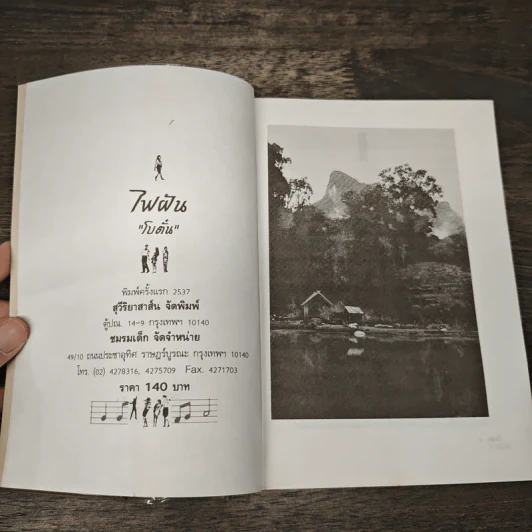 ไฟฝัน
"โบตั๋น"
พิมพ์ครั้งแรก 2537
สุวีริยาสาส์น จัดพิมพ์
ตู้ปณ. 14-9 กรุงเทพฯ 10140
ชมรมเด็ก จัดจำหน่าย
49/10 ถนนประชาอุทิศ ราษฎร์บูรณะ กรุงเทพฯ 10140
โทร. (02) 4278316, 4275709 Fax. 4271703
ราคา 140 บาท